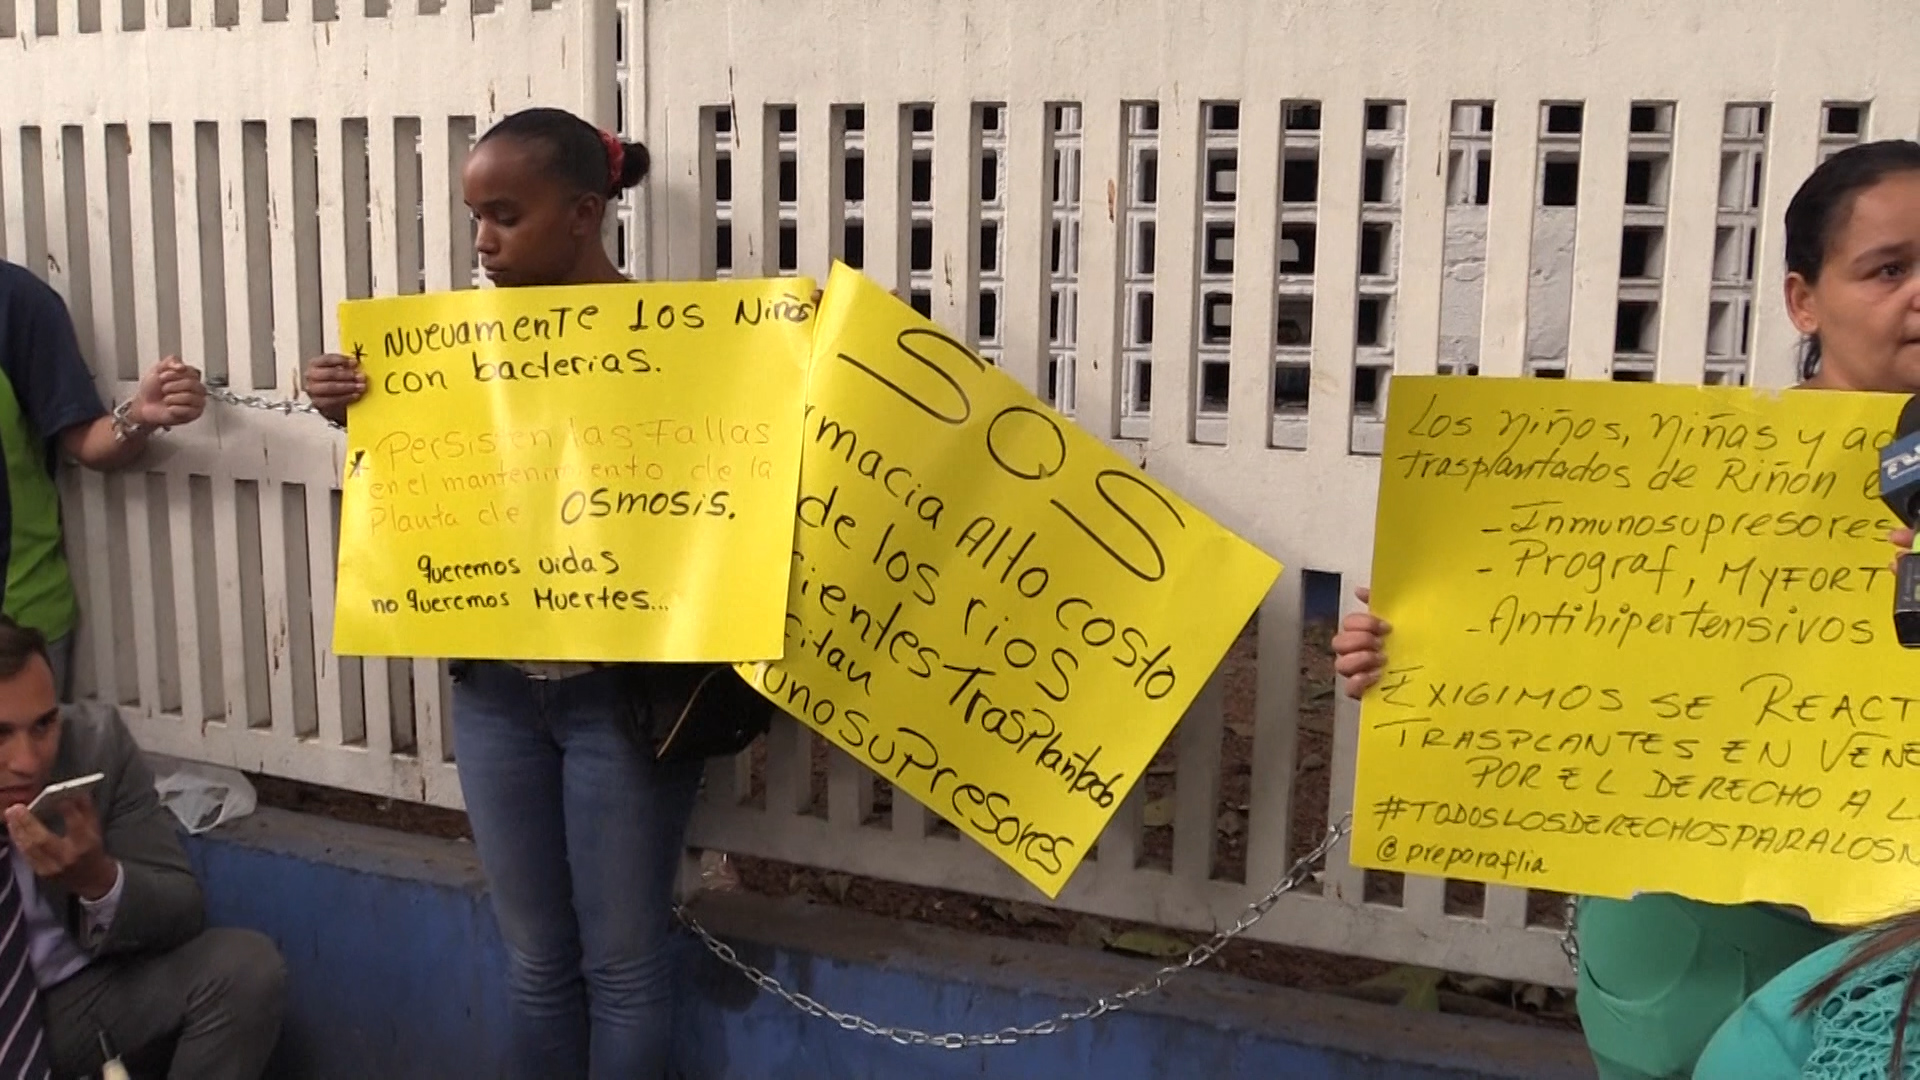 * NUEVAMENTE LOS Niños
con bacterias.
* Persisten las Fallas
en el mantenimiento de la
Planta de OSMOSIS.
queremos vidas
no queremos Muertes...
SOS
rmacia Alto costo
de los rios
ientes Trasplantado
itan
unosupresores
Los Niños, Niñas y ad
Trasplantados de Riñon
- Inmunosupresores
- Prograf, MYFORT
- Antihipertensivos
EXIGIMOS SE REACT
TRASPLANTES EN VENE
POR EL DERECHO A L
#TODOSLOSDERECHOSPARALOSN
@preparaflia